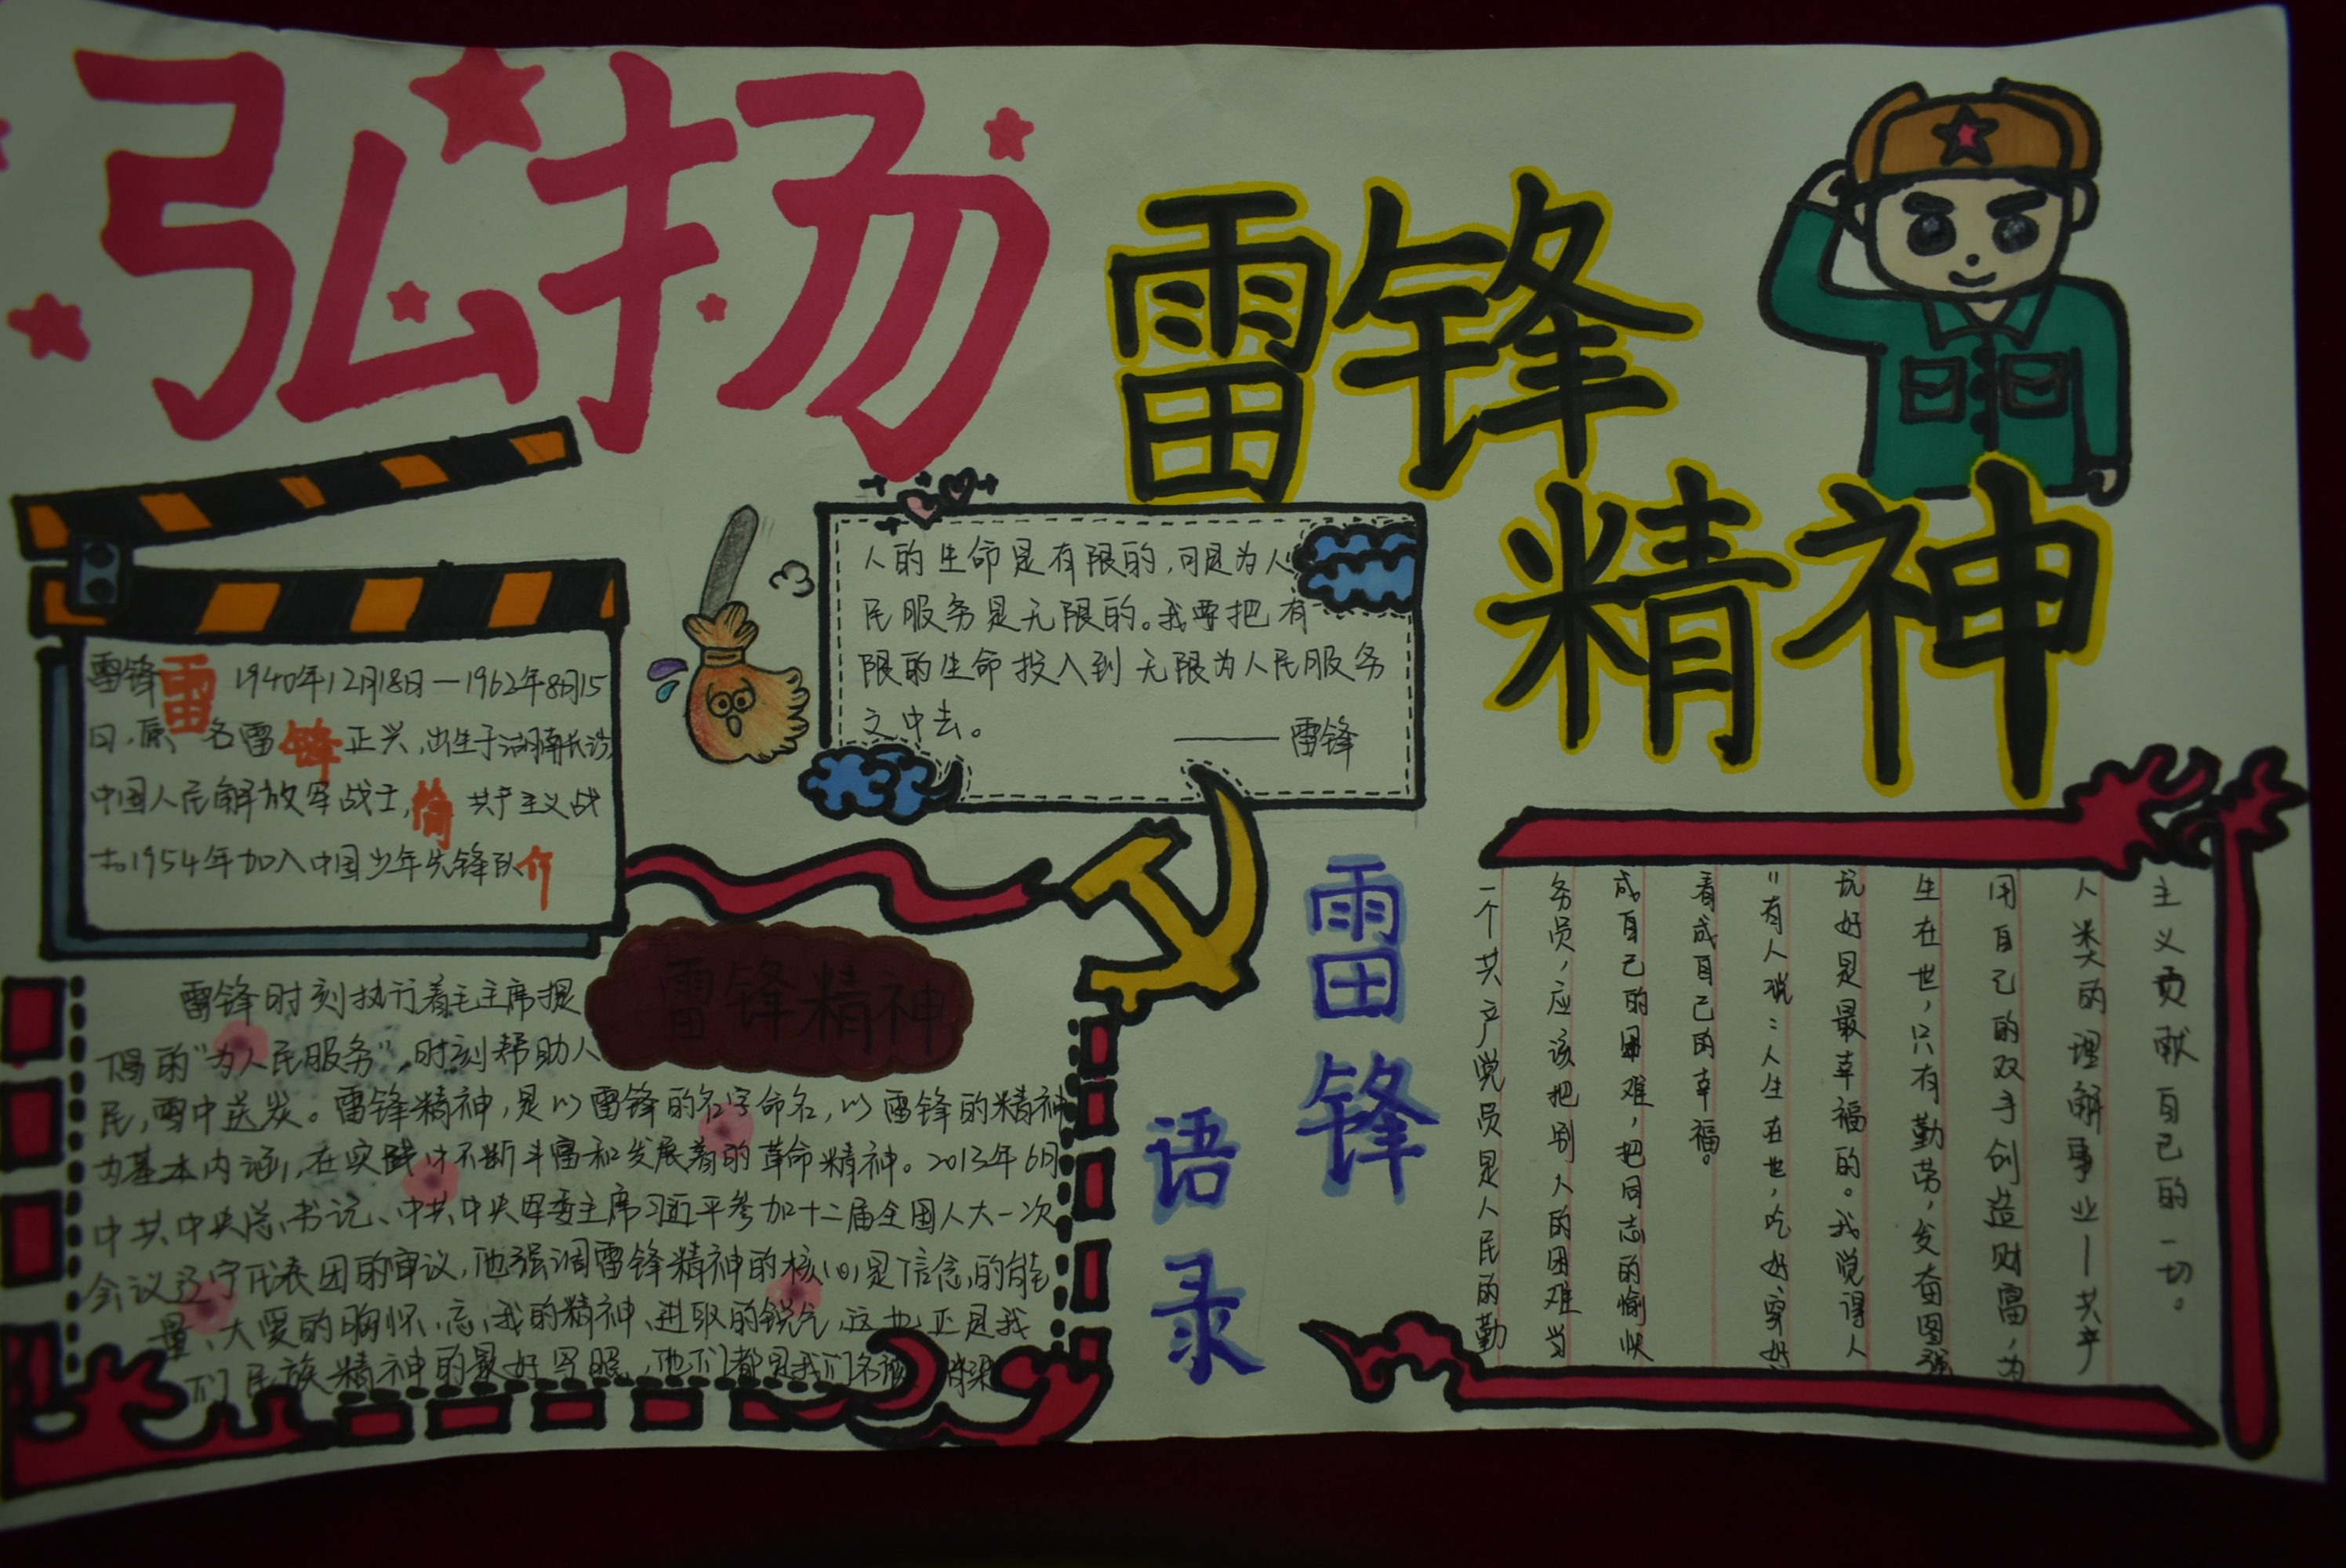 弘扬
雷锋
精神
雷锋 1940年12月18日—1962年8月15
日,原名雷正兴,出生于湖南长沙,
中国人民解放军战士,共产主义战
士1954年加入中国少年先锋队
雷锋简介
人的生命是有限的,可是为人
民服务是无限的。我要把有
限的生命投入到无限为人民服务
之中去。
——雷锋
雷锋精神
雷锋时刻执行着毛主席提
倡的"为人民服务",时刻帮助人
民,雪中送炭。雷锋精神,是以雷锋的名字命名,以雷锋的精神
为基本内涵,在实践中不断丰富和发展着的革命精神。2013年6月
中共中央总书记、中共中央军委主席习近平参加十二届全国人大一次
会议辽宁代表团的审议,他强调雷锋精神的核心是信念的能
量、大爱的胸怀、忘我的精神、进取的锐气,这也正是我
们民族精神的最好写照,他们都是我们
雷锋
语录
一个共产党员是人民的勤
务员,应该把别人的困难当
成自己的困难,把同志的愉快
看成自己的幸福。
"有人说:人生在世,吃好穿好
玩好是最幸福的。我觉得人
生在世,只有勤劳,发奋图强
用自己的双手创造财富,为
人类的理解事业—共产
主义贡献自己的一切。